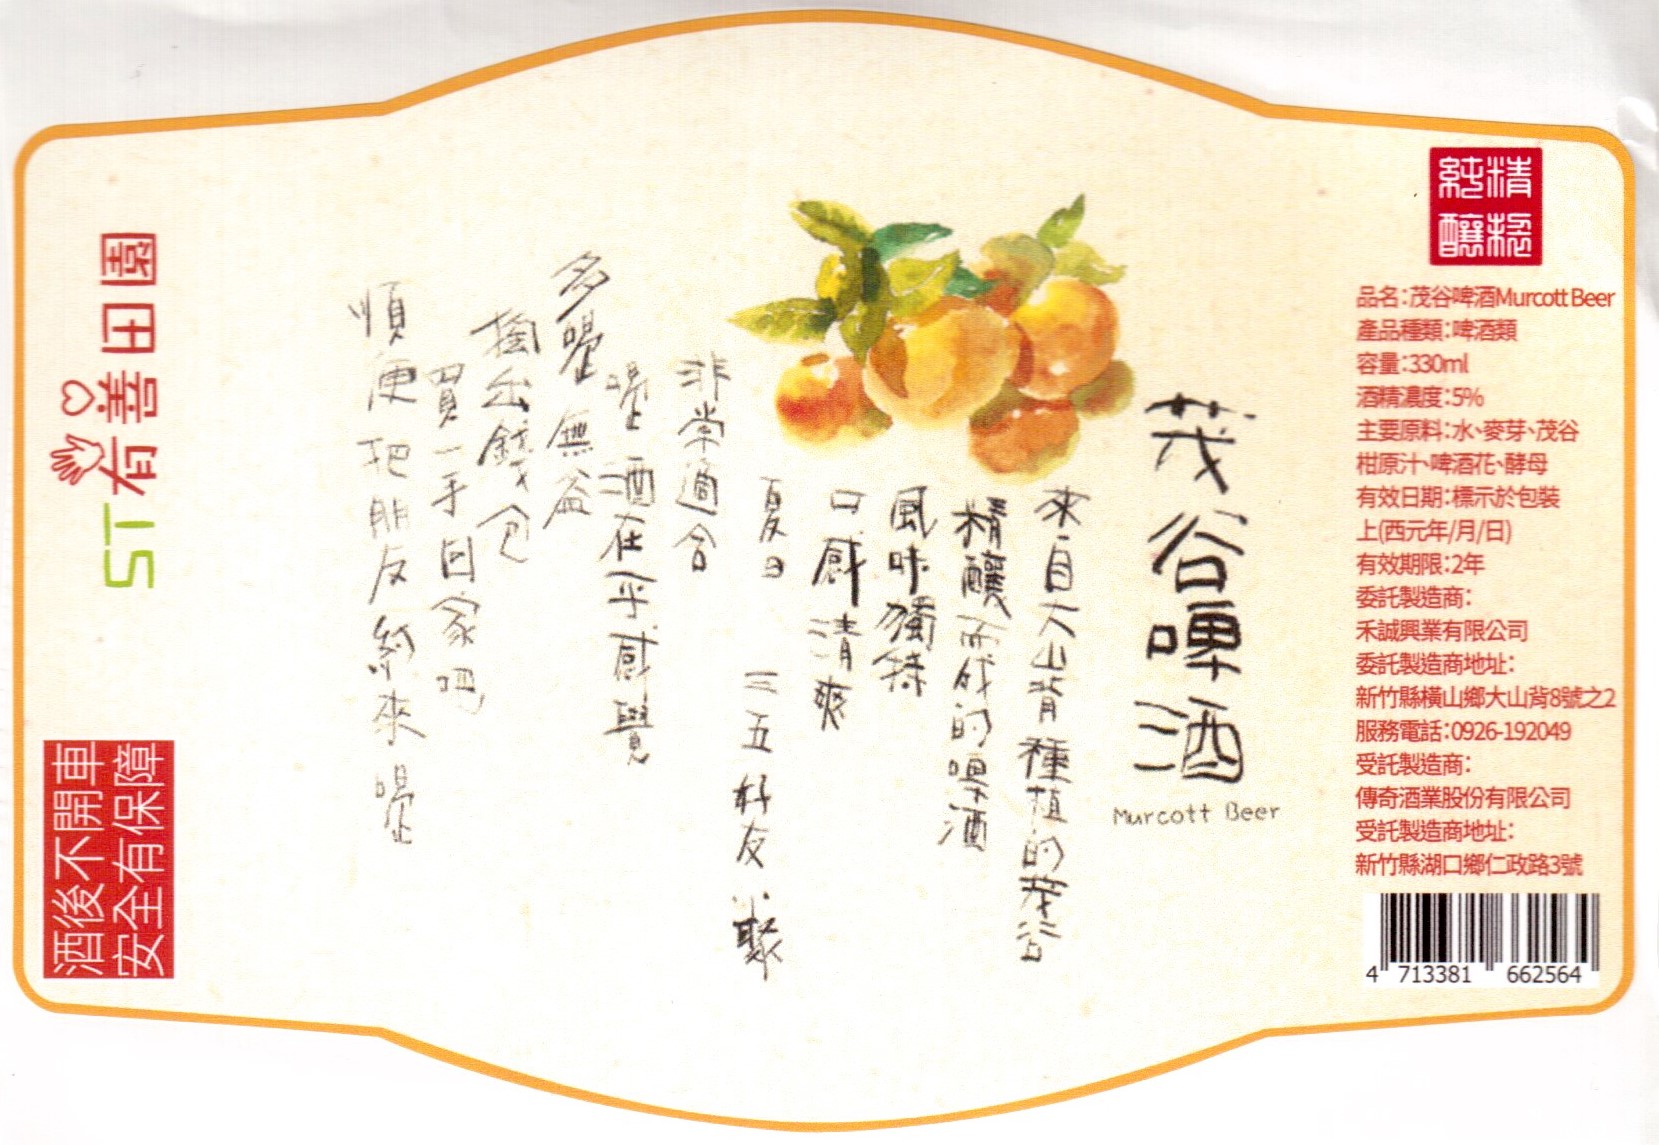 茂谷啤酒
Murcott Beer
來自大山背種植的茂谷
精釀而成的啤酒
風味獨特
口感清爽
夏日 三五好友小聚
非常適合
喝酒在乎感覺
多喝無益
掏出錢包
買一手回家吧
順便把朋友約來喝
精粮
純釀
品名:茂谷啤酒Murcott Beer
產品種類:啤酒類
容量:330ml
酒精濃度:5%
主要原料:水、麥芽、茂谷
柑原汁、啤酒花、酵母
有效日期:標示於包裝
上(西元年/月/日)
有效期限:2年
委託製造商:
禾誠興業有限公司
委託製造商地址:
新竹縣橫山鄉大山背8號之2
服務電話:0926-192049
受託製造商:
傳奇酒業股份有限公司
受託製造商地址:
新竹縣湖口鄉仁政路3號
4 713381 662564
ST有善田園
酒後不開車
安全有保障